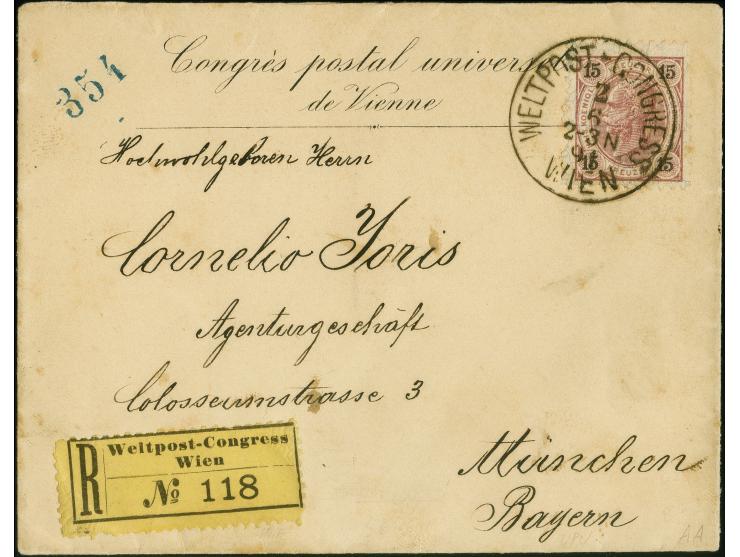 354
Congrès postal univers
de Vienne
WELTPOST * CONGRESS
2
5
2-3N
91
WIEN
15 15
15 15
KREUZ
Hochwohlgeboren Herrn
Cornelio Joris
Agenturgeschäft
Colosseumstrasse 3
R
Weltpost-Congress
Wien
No 118
München
Bayern
AA